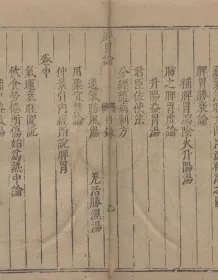 脾胃勝衰論
補脾胃瀉陰火升陽湯
肺之脾胃虛論
升陽益胃湯
君臣佐使法
分經隨病制方
脾胃論 目錄
通氣防風湯 羌活勝濕湯
用藥宜禁論
仲景引內經所說脾胃
卷中
氣運衰旺圖說
飲食勞倦所傷始為熱中論